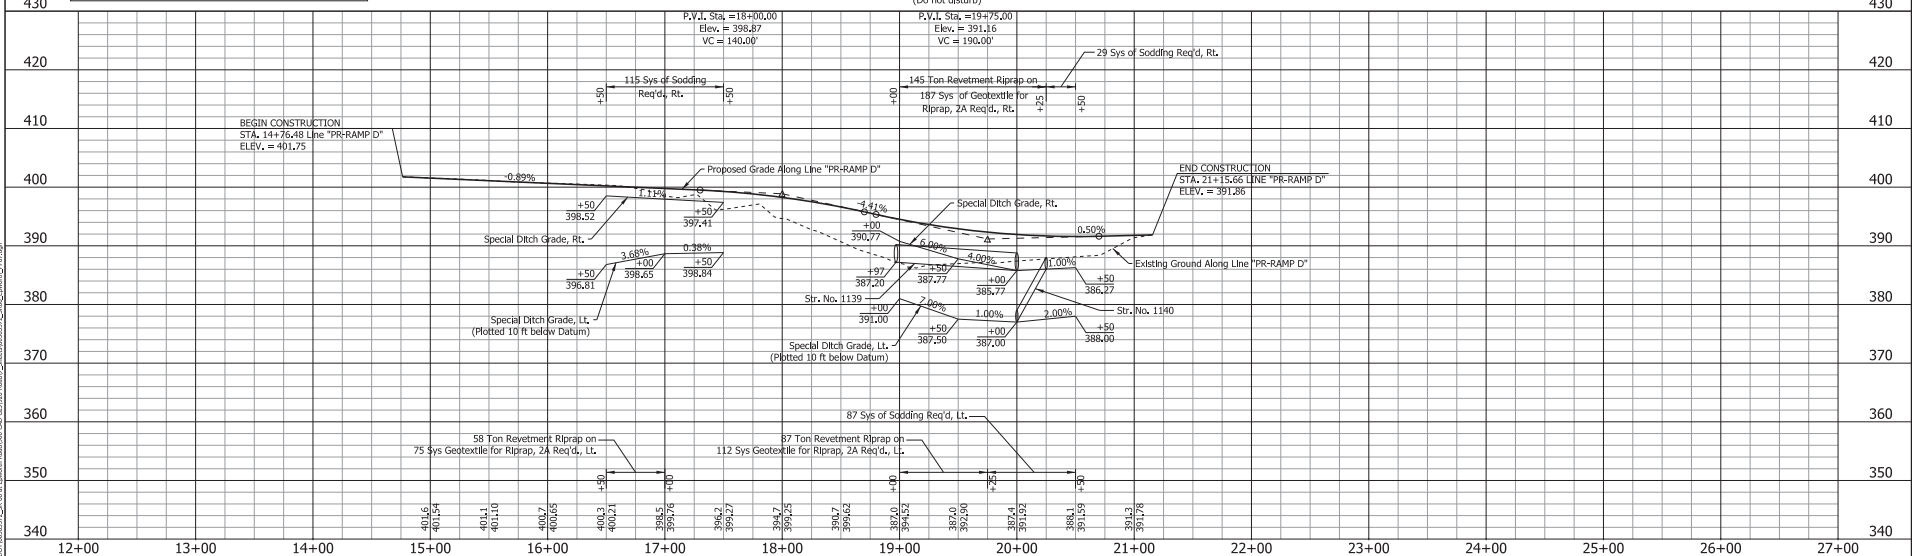 (Do not disturb)
430
430
P.V.I. Sta. =18+00.00
Elev. = 398.87
VC = 140.00'
P.V.I. Sta. =19+75.00
Elev. = 391.16
VC = 190.00'
29 Sys of Sodding Req'd, Rt.
420
420
115 Sys of Sodding
Req'd., Rt.
+50
+50
145 Ton Revetment Riprap on
187 Sys of Geotextile for
Riprap, 2A Req'd., Rt.
+00
+25
+50
410
410
BEGIN CONSTRUCTION
STA. 14+76.48 Line "PR-RAMP D"
ELEV. = 401.75
END CONSTRUCTION
STA. 21+15.66 LINE "PR-RAMP D"
ELEV. = 391.86
400
400
-0.89%
Proposed Grade Along Line "PR-RAMP D"
1.11%
+50
398.52
+50
397.41
-4.41%
Special Ditch Grade, Rt.
+00
390.77
0.50%
Special Ditch Grade, Rt.
390
390
3.68%
0.38%
+00
398.65
+50
398.84
+50
396.81
6.00%
4.00%
1.00%
+97
387.20
+50
387.77
+00
385.77
+50
386.27
Existing Ground Along Line "PR-RAMP D"
380
380
Str. No. 1139
+00
391.00
7.00%
1.00%
2.00%
Str. No. 1140
Special Ditch Grade, Lt.
(Plotted 10 ft below Datum)
+50
387.50
+00
387.00
+50
388.00
Special Ditch Grade, Lt.
(Plotted 10 ft below Datum)
370
370
360
360
87 Sys of Sodding Req'd, Lt.
58 Ton Revetment Riprap on
75 Sys Geotextile for Riprap, 2A Req'd., Lt.
87 Ton Revetment Riprap on
112 Sys Geotextile for Riprap, 2A Req'd., Lt.
350
350
+50
+00
+00
+25
+50
401.6
401.54
401.1
401.10
400.7
400.65
400.3
400.21
398.5
399.76
396.2
399.27
394.7
399.25
390.7
399.62
387.0
394.52
387.0
392.90
387.4
391.92
388.1
391.59
391.3
391.78
340
340
12+00
13+00
14+00
15+00
16+00
17+00
18+00
19+00
20+00
21+00
22+00
23+00
24+00
25+00
26+00
27+00